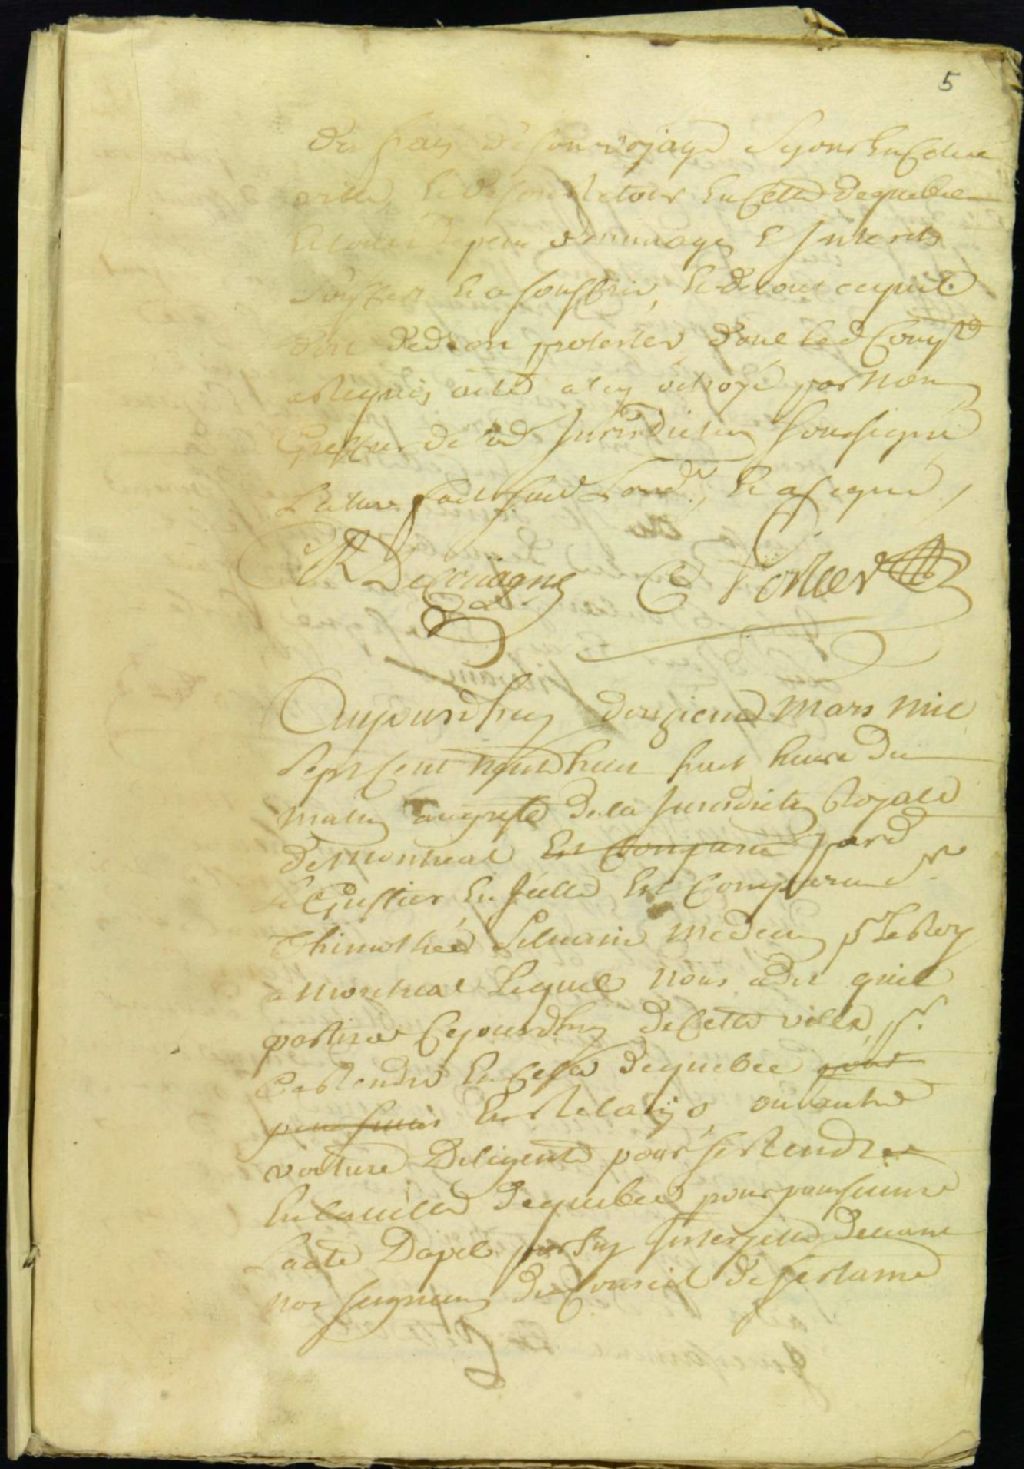 5
des frais de son voyage sejour en cette
ville et de son retour en celle de quebec
et tous depens dommages & Interests
souffert et a souffrir, et de tout ce quil
doit de droit protester dont led Comp.t
a requis acte a luy octroyé par nous
Greffier de lad Jurisdiction soussigné
Lecture faite aud. Comp. et a signé /
Decouagne C Porlier
Aujourdhuy douzieme Mars mil
sept cent vingt huit huit heure du
matin au greffe de la Jurisdiction Royale
de montreal Est Comparu pard
le Greffier en Icelle Est Comparu s.r
Thimothée Silvain Medecin p.r le Roy
a montreal Lequel nous a dit quil
partira cejourdhuy de cette ville p.r
se rendre en celle de quebec pour
poursuivre en relais, ou autre
voiture diligente pour se rendre
en la ville de quebec pour poursuivre
L'acte Dapel par luy Interjetté devant
nos seigneurs du Conseil de sentence